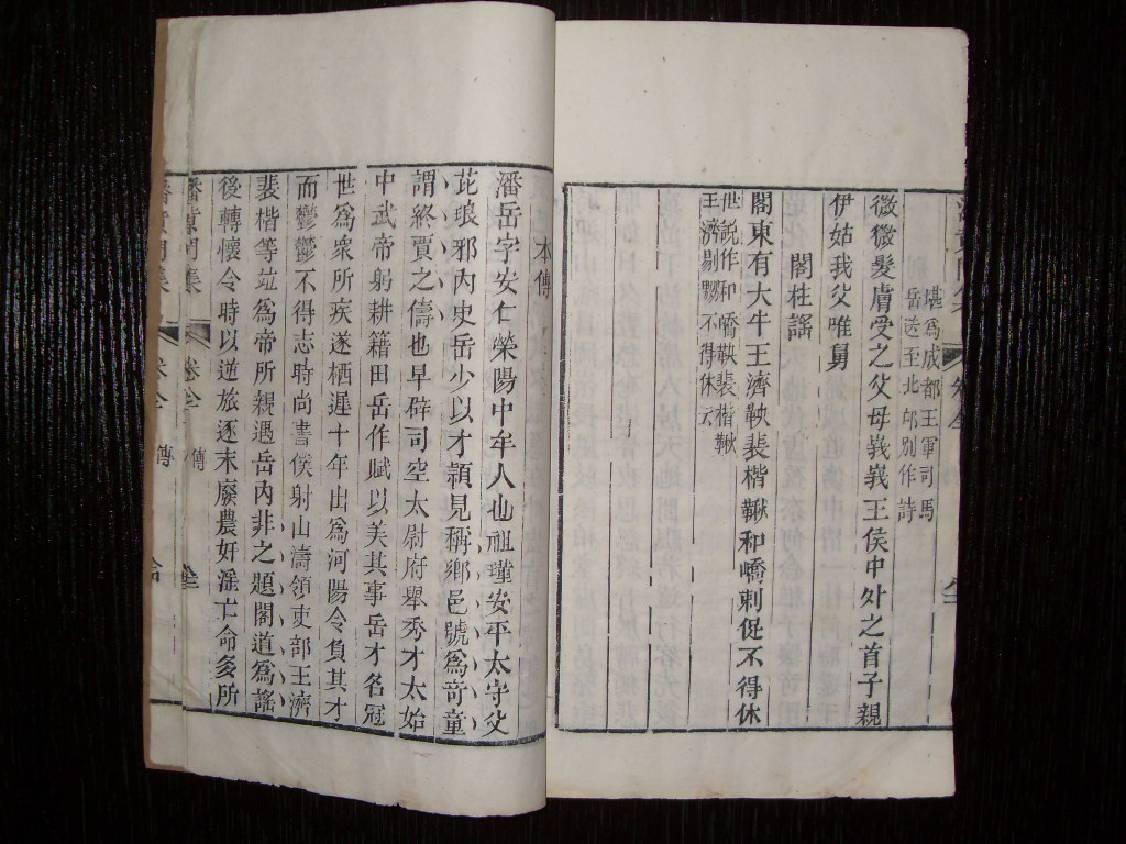 潘黃門集 卷全 全
堪爲成都王軍司馬
岳送至北邙別作詩
微微髮膚受之父母峩峩王侯中外之首子親
伊姑我父唯舅
閣柱謠
閣東有大牛王濟鞅裴楷鞦和嶠剌促不得休
世說作和嶠鞅裴楷鞦
王濟剔嬲不得休云
本傳
潘岳字安仁榮陽中牟人也祖瑾安平太守父
芘琅邪內史岳少以才穎見稱鄉邑號爲奇童
謂終賈之儔也早辟司空太尉府舉秀才太始
中武帝躬耕籍田岳作賦以美其事岳才名冠
世爲衆所疾遂栖遲十年出爲河陽令負其才
而鬱鬱不得志時尚書僕射山濤領吏部王濟
裴楷等竝爲帝所親遇岳內非之題閣道爲謠
後轉懷令時以逆旅逐末廢農奸淫亡命多所
潘黃門集 卷全 傳 全